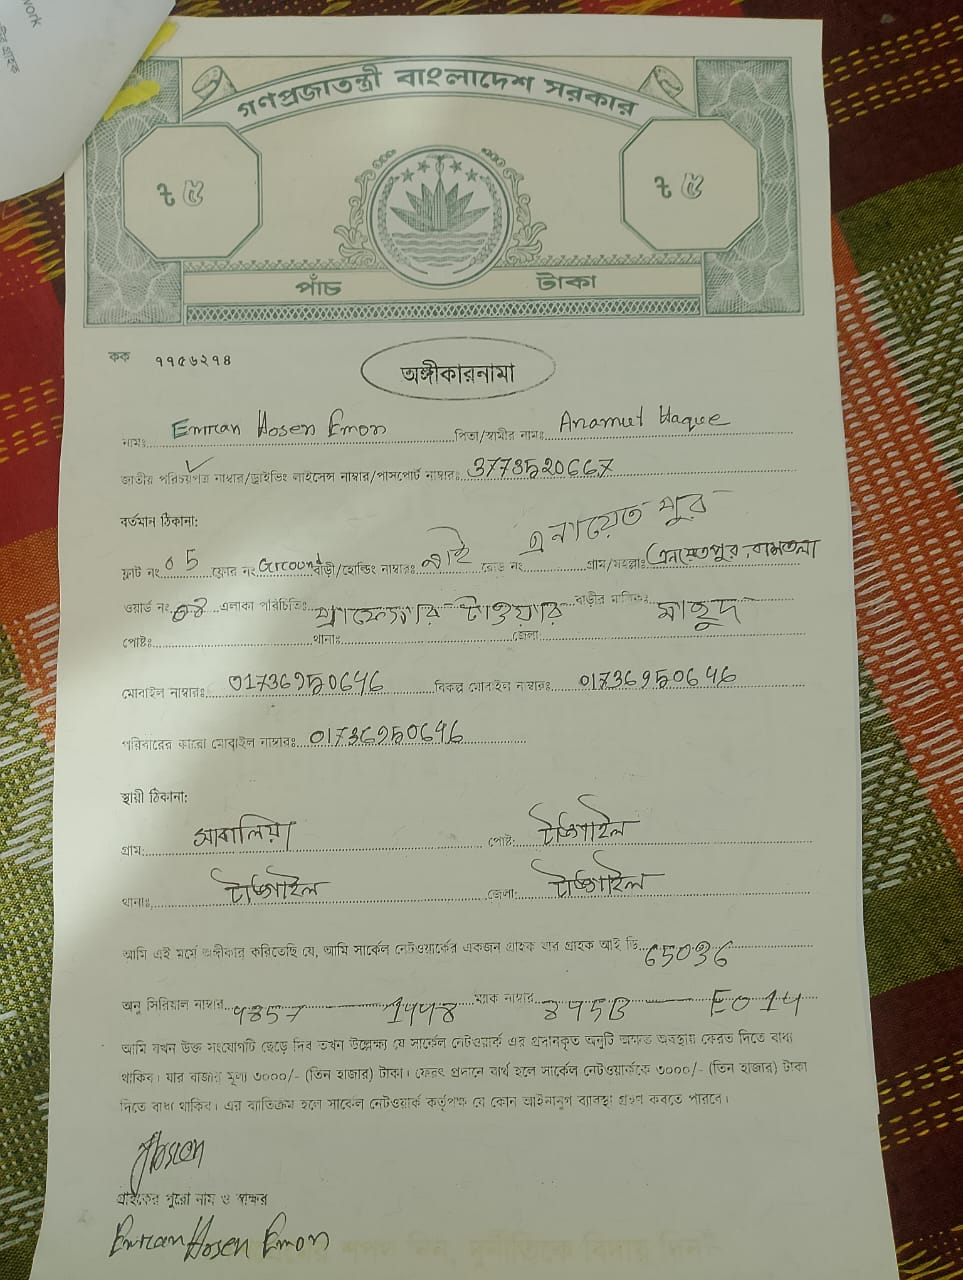 গণপ্রজাতন্ত্রী বাংলাদেশ সরকার
৳ ৫ ৳ ৫
পাঁচ টাকা
কক ৭৭৫৬২৭৪
অঙ্গীকারনামা
নামঃ Emran Hosen Emon পিতা/স্বামীর নামঃ Anamul Haque
জাতীয় পরিচয়পত্র নাম্বার/ড্রাইভিং লাইসেন্স নাম্বার/পাসপোর্ট নাম্বারঃ 3773520667
বর্তমান ঠিকানা:
এনায়েত পুর
ফ্লাট নং 05 ফ্লোর নং Ground বাড়ী/হোল্ডিং নাম্বারঃ নাই রোড নং গ্রাম/মহল্লাঃ এনায়েতপুর, বামতলা
ওয়ার্ড নং 08 এলাকা পরিচিতিঃ প্রফেসার টাওয়ার বাড়ীর মালিকঃ মাহুদ
পোষ্টঃ থানাঃ জেলা
মোবাইল নাম্বারঃ 01736950646 বিকল্প মোবাইল নাম্বারঃ 01736950646
পরিবারের কারো মোবাইল নাম্বারঃ 01736950646
স্থায়ী ঠিকানা:
গ্রাম: সাবালিয়া পোষ্ট: টাঙ্গাইল
থানাঃ টাঙ্গাইল জেলা: টাঙ্গাইল
আমি এই মর্মে অঙ্গীকার করিতেছি যে, আমি সার্কেল নেটওয়ার্কের একজন গ্রাহক যার গ্রাহক আই ডি 65036
অনু সিরিয়াল নাম্বার ম্যাক নাম্বার E014
আমি যখন উক্ত সংযোগটি ছেড়ে দিব তখন উল্লেক্ষ্য যে সার্কেল নেটওয়ার্ক এর প্রদানকৃত অনুটি অক্ষত অবস্থায় ফেরত দিতে বাধ্য
থাকিব। যার বাজার মূল্য ৩০০০/- (তিন হাজার) টাকা। ফেরৎ প্রদানে ব্যর্থ হলে সার্কেল নেটওয়ার্ককে ৩০০০/- (তিন হাজার) টাকা
দিতে বাধ্য থাকিব। এর ব্যতিক্রম হলে সার্কেল নেটওয়ার্ক কর্তৃপক্ষ যে কোন আইনানুগ ব্যবস্থা গ্রহণ করতে পারবে।
Hosen
গ্রাহকের পুরো নাম ও স্বাক্ষর
Emran Hosen Emon